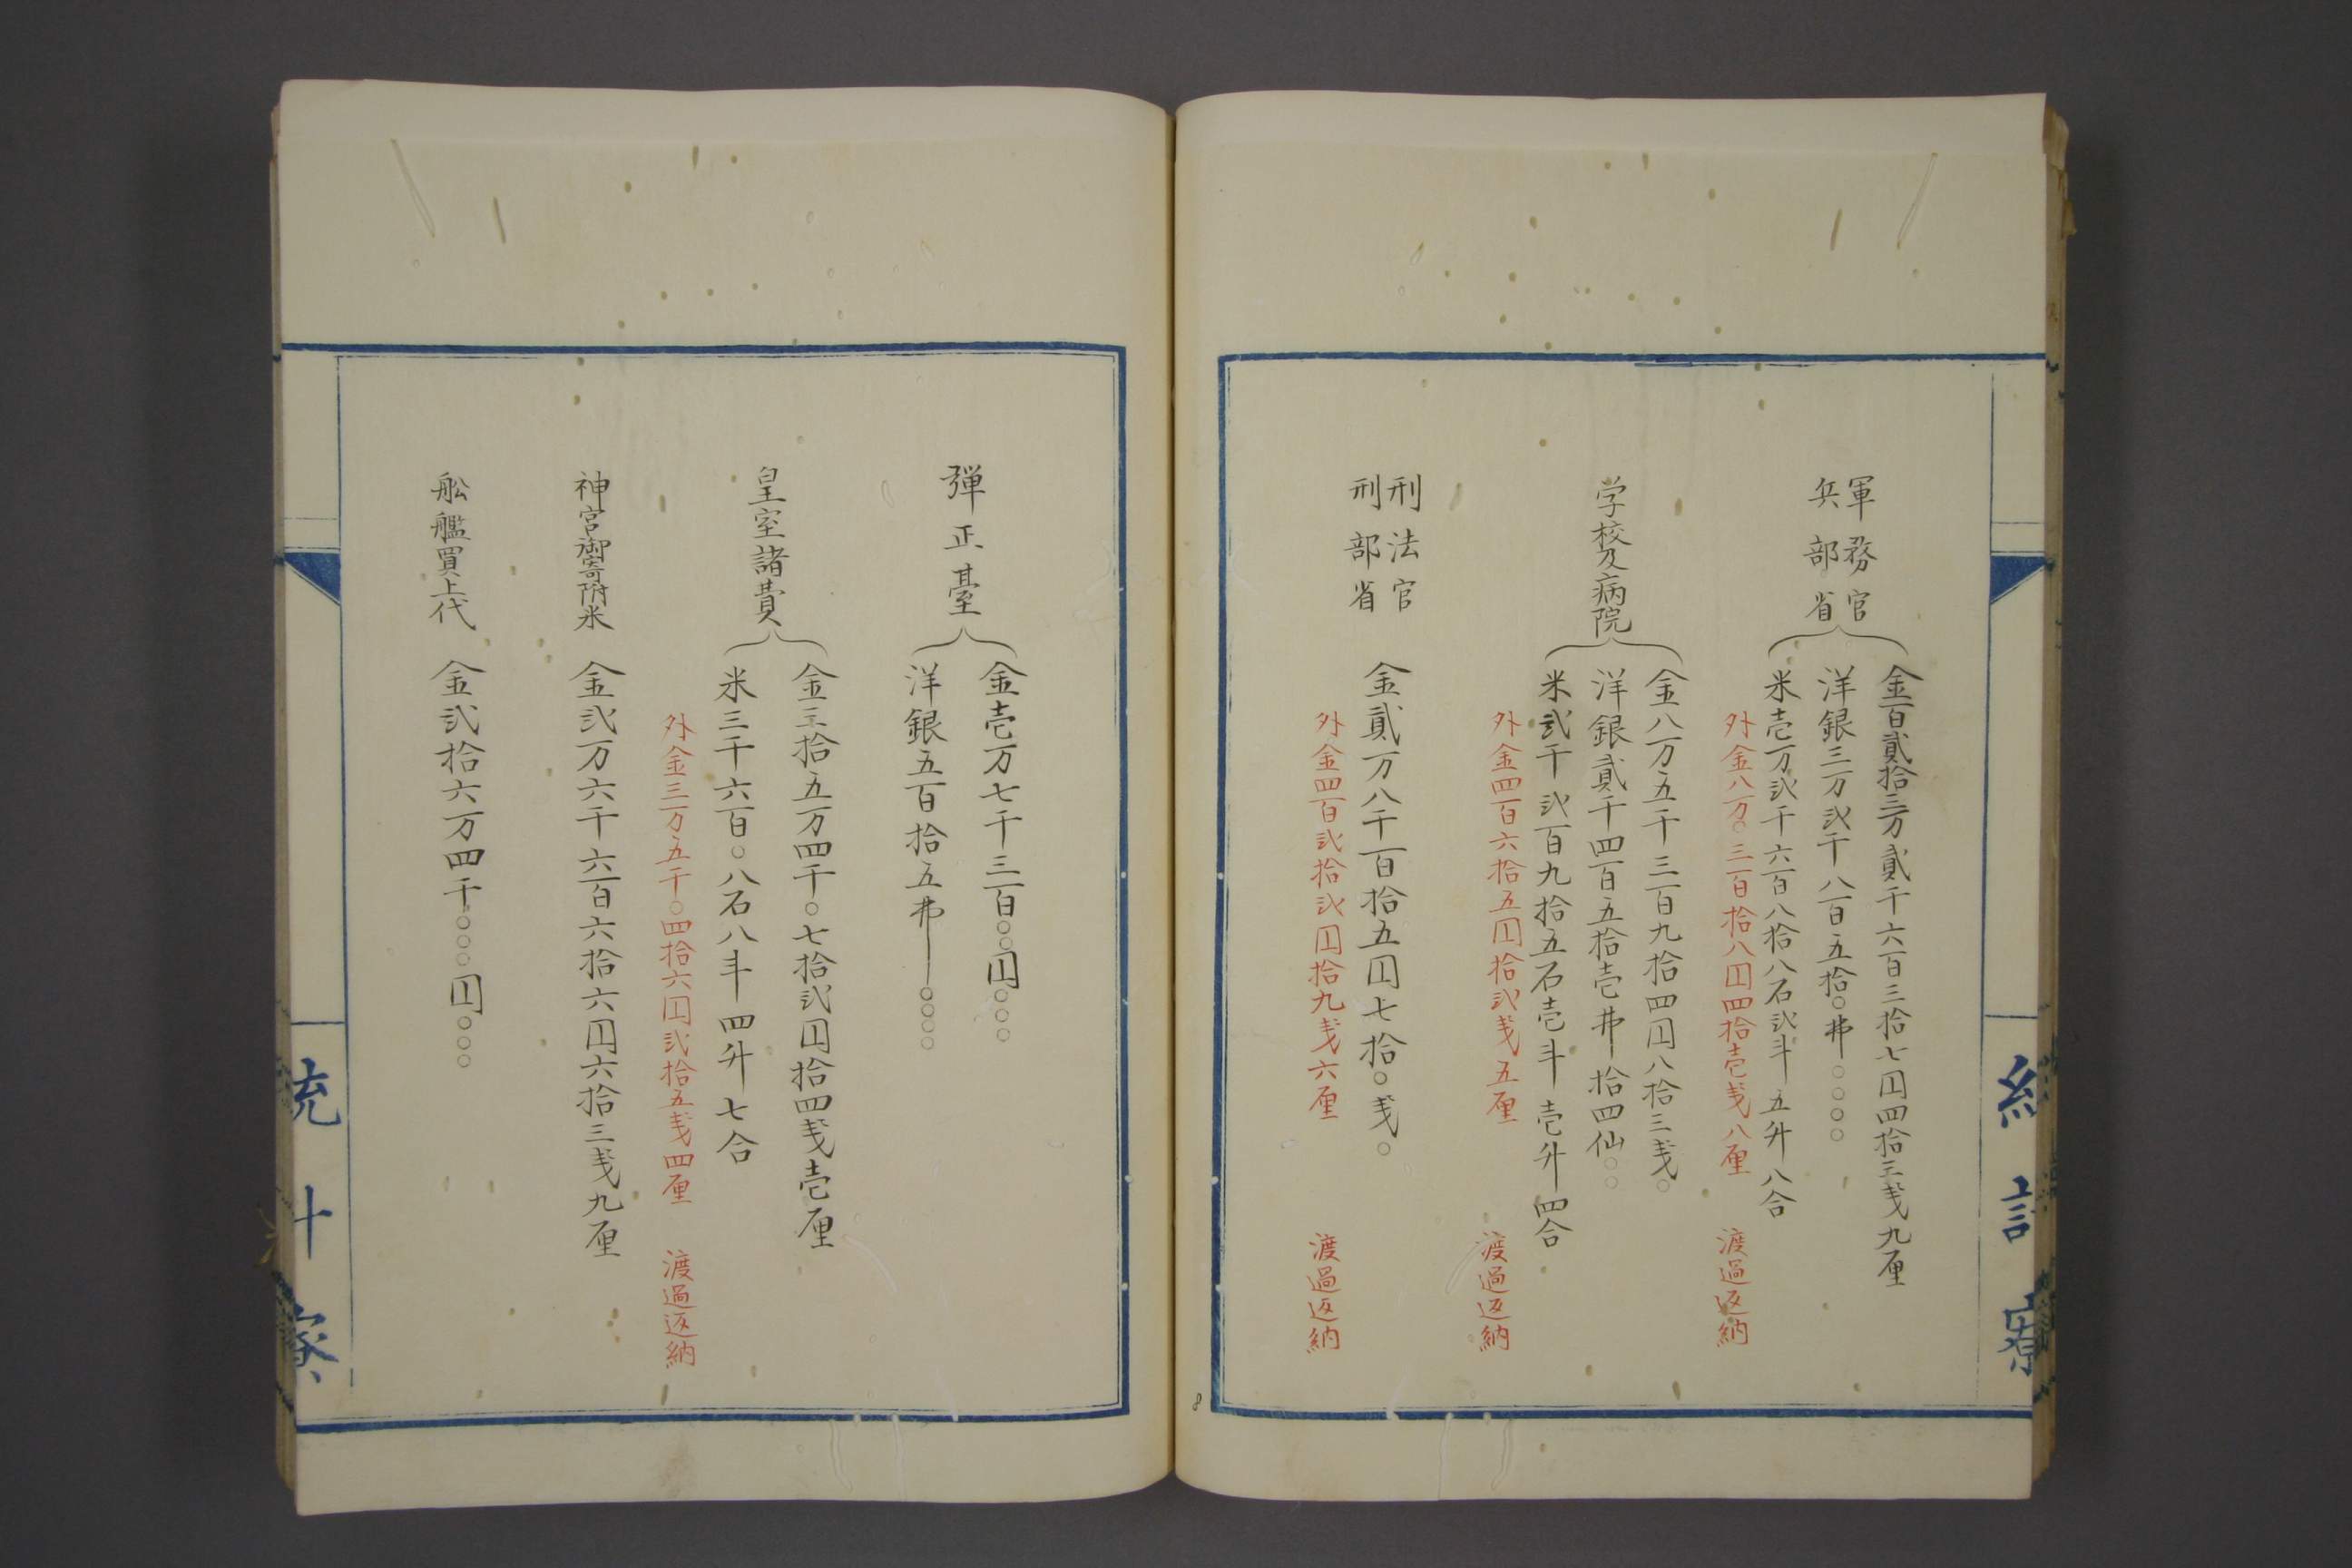 軍務官
兵部省
金百貳拾三万貳千六百三拾七円四拾三戔九厘
洋銀三万弐千八百五拾○弗○○○○
米壱万弐千六百八拾八石弐斗五升八合
外金八万○三百拾八円四拾壱戔八厘 渡過返納
学校及病院
金八万五千三百九拾四円八拾三戔○
洋銀貳千四百五拾壱弗拾四仙○○
米弐千弐百九拾五石壱斗壱升四合
外金四百六拾五円拾弐戔五厘 渡過返納
刑法官
刑部省
金貳万八千百拾五円七拾○戔○
外金四百弐拾弐円拾九戔六厘 渡過返納
統計寮
8
弾正臺
金壱万七千三百○○円○○○
洋銀五百拾五弗○○○○
皇室諸費
金三拾五万四千○七拾弐円拾四戔壱厘
米三千六百○八石八斗四升七合
外金三万五千○四拾六円弐拾五戔四厘 渡過返納
神宮御寄附米 金弐万六千六百六拾六円六拾三戔九厘
舩艦買上代 金弐拾六万四千○○○円○○○
統計寮